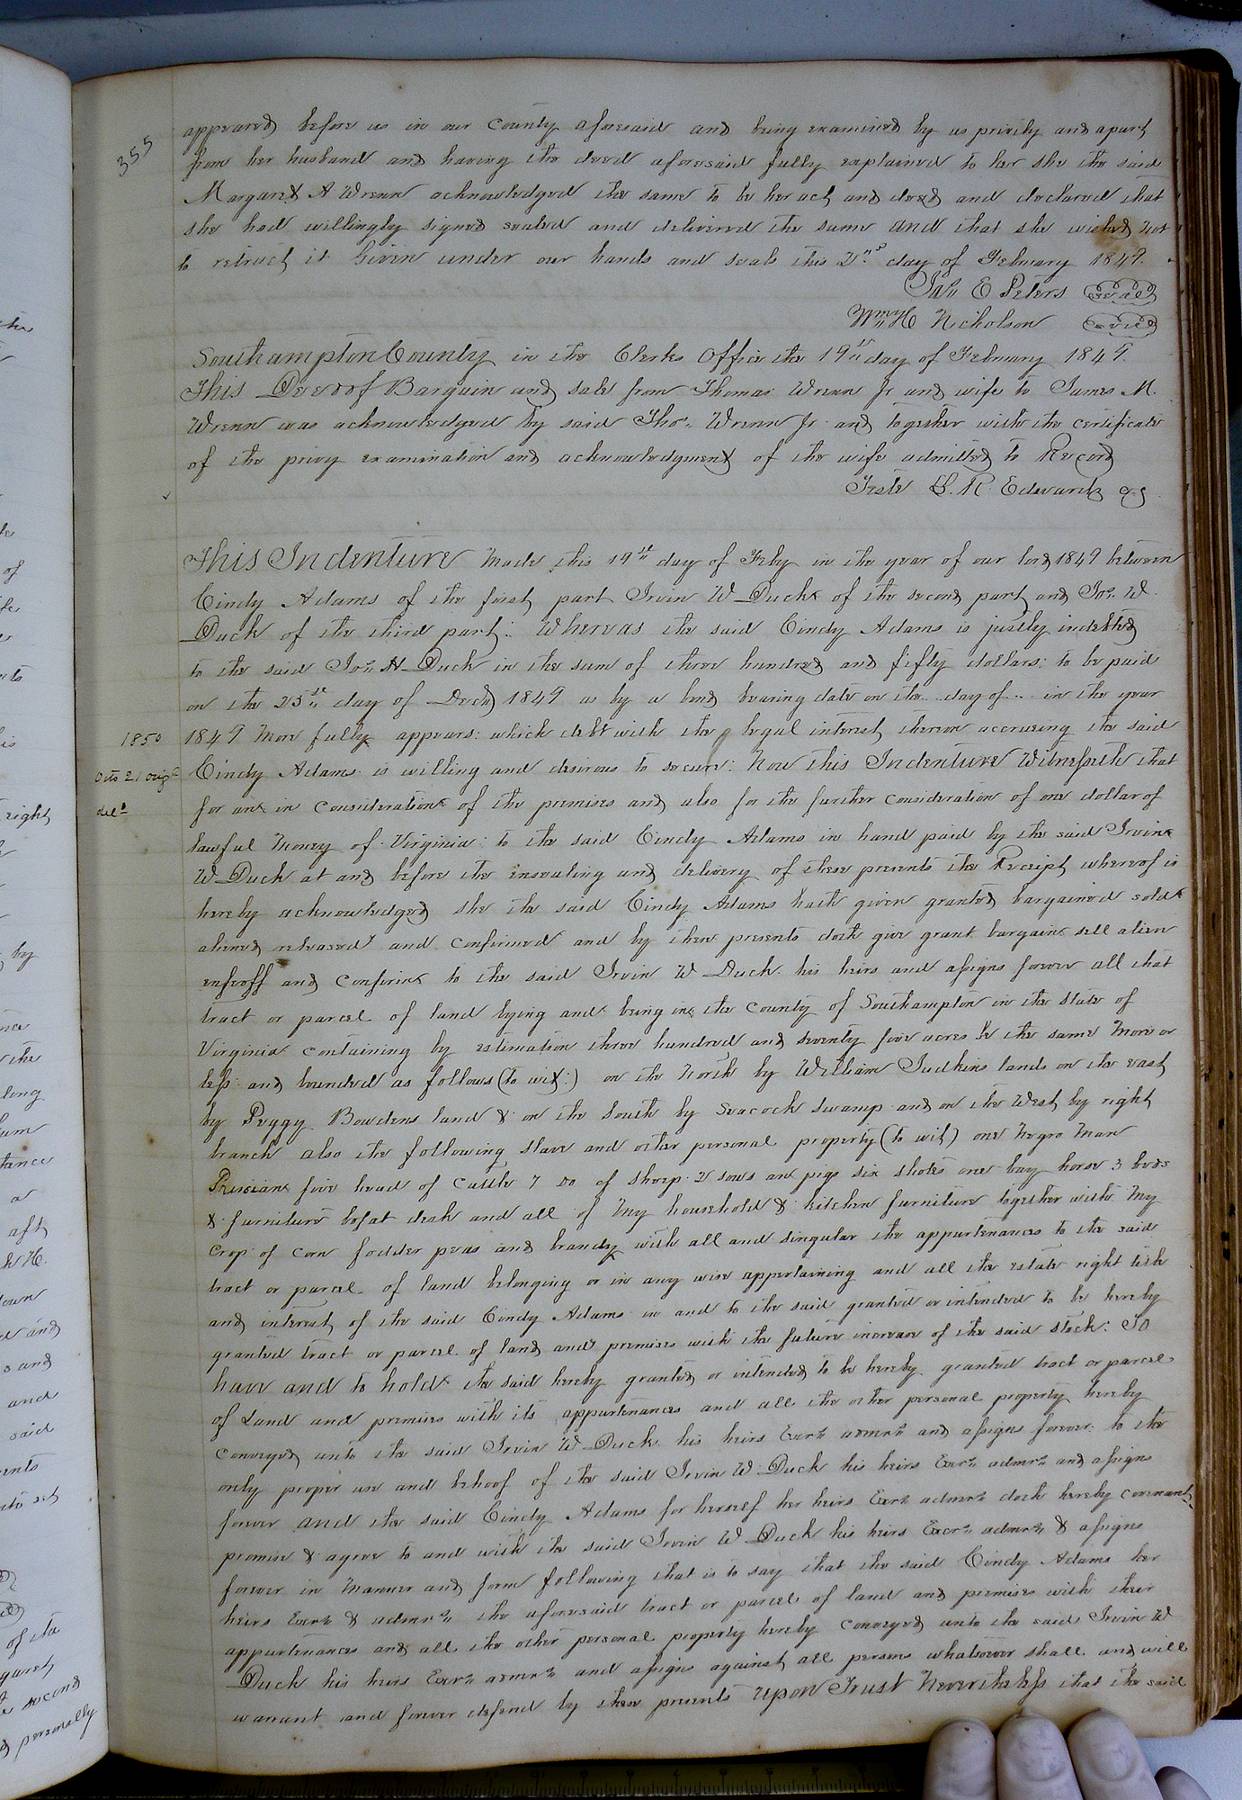 355
appeared before us in our County aforesaid and being examined by us privily and apart
from her husband and having the deed aforesaid fully explained to her she the said
Margaret A Wrenn acknowledged the same to be her act and deed and declared that
she had willingly signed sealed and delivered the same and that she wished not
to retract it Given under our hands and seals this 2nd day of February 1849.
Jas. E Peters Seal
Wm H Nicholson Seal
Southampton County in the Clerks Office the 19th day of February 1849.
This Deed of Bargain and sale from Thomas Wrenn Jr and wife to James M.
Wrenn was acknowledged by said Thos. Wrenn Jr and together with the certificate
of the privy examination and acknowledgment of the wife admitted to Record
Teste L. R. Edwards
This Indenture Made this 19th day of Feby in the year of our lord 1849 between
Cindy Adams of the first part Irvin W Duck of the second part and Jos. W.
Duck of the third part: Whereas the said Cindy Adams is justly indebted
to the said Jos. H Duck in the sum of three hundred and fifty dollars: to be paid
on the 25th day of Decd 1849 as by a bond bearing date on the .. day of .. in the year
1850
1849 More fully appears: which debt with the legal interest thereon accruing the said
Octo 21 orig
Cindy Adams is willing and desirous to secure: Now this Indenture Witnesseth that
deld
for and in Consideration of the premises and also for the further consideration of one dollar of
lawful Money of Virginia: to the said Cindy Adams in hand paid by the said Irvin
W Duck at and before the ensealing and delivery of these presents the Receipt whereof is
hereby acknowledged she the said Cindy Adams hath given granted bargained sold
aliened released and confirmed and by these presents doth give grant bargain sell alien
enfeoff and Confirm to the said Irvin W Duck his heirs and assigns forever all that
tract or parcel of land lying and being in the County of Southampton in the State of
Virginia containing by estimation three hundred and seventy five acres be the same More or
less and bounded as follows (to wit:) on the North by William Judkins lands on the east
by Peggy Bowdens land & on the South by Seacock swamp and on the West by right
branch also the following slave and other personal property (to wit) one Negro Man
five head of Cattle 7 Do of sheep 2 sows an pigs six shotes one bay horse 3 beds
& furniture bofat desk and all of My household & kitchen furniture together with My
Crop of corn fodder peas and brandy with all and singular the appurtenances to the said
tract or parcel of land belonging or in any wise appertaining and all the estate right title
and interest of the said Cindy Adams in and to the said granted or intended to be hereby
granted tract or parcel of land and premises with the future increase of the said stock: To
have and to hold the said hereby granted or intended to be hereby granted tract or parcel
of Land and premises with its appurtenances and all the other personal property hereby
Conveyed unto the said Irvin W Duck his heirs Exors admrs and assigns forever to the
only proper use and behoof of the said Irvin W. Duck his heirs Exors admrs and assigns
forever and the said Cindy Adams for herself her heirs Exors admrs doth hereby covenant
promise & agree to and with the said Irvin W Duck his heirs Exors admrs & assigns
forever in Manner and form following that is to say that the said Cindy Adams her
heirs Exors & admrs the aforesaid tract or parcel of land and premises with their
appurtenances and all the other personal property hereby conveyed unto the said Irvin W
Duck his heirs Exors admrs and assigns against all persons whatsoever shall and will
warrant and forever defend by these presents Upon Trust Nevertheless that the said